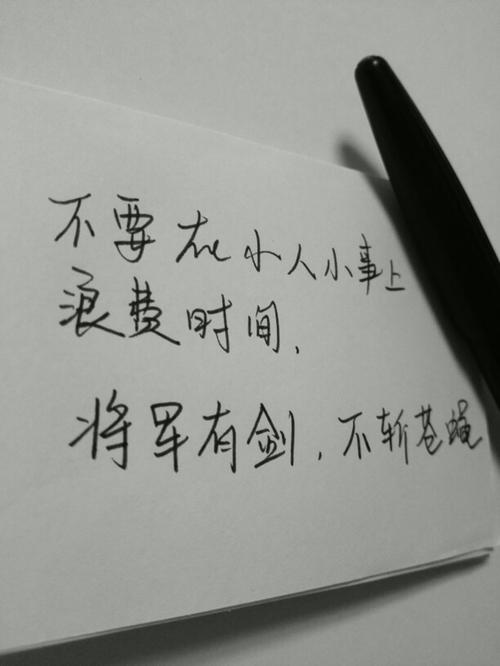 不要在小人小事上
浪费时间，
将军有剑，不斩苍蝇